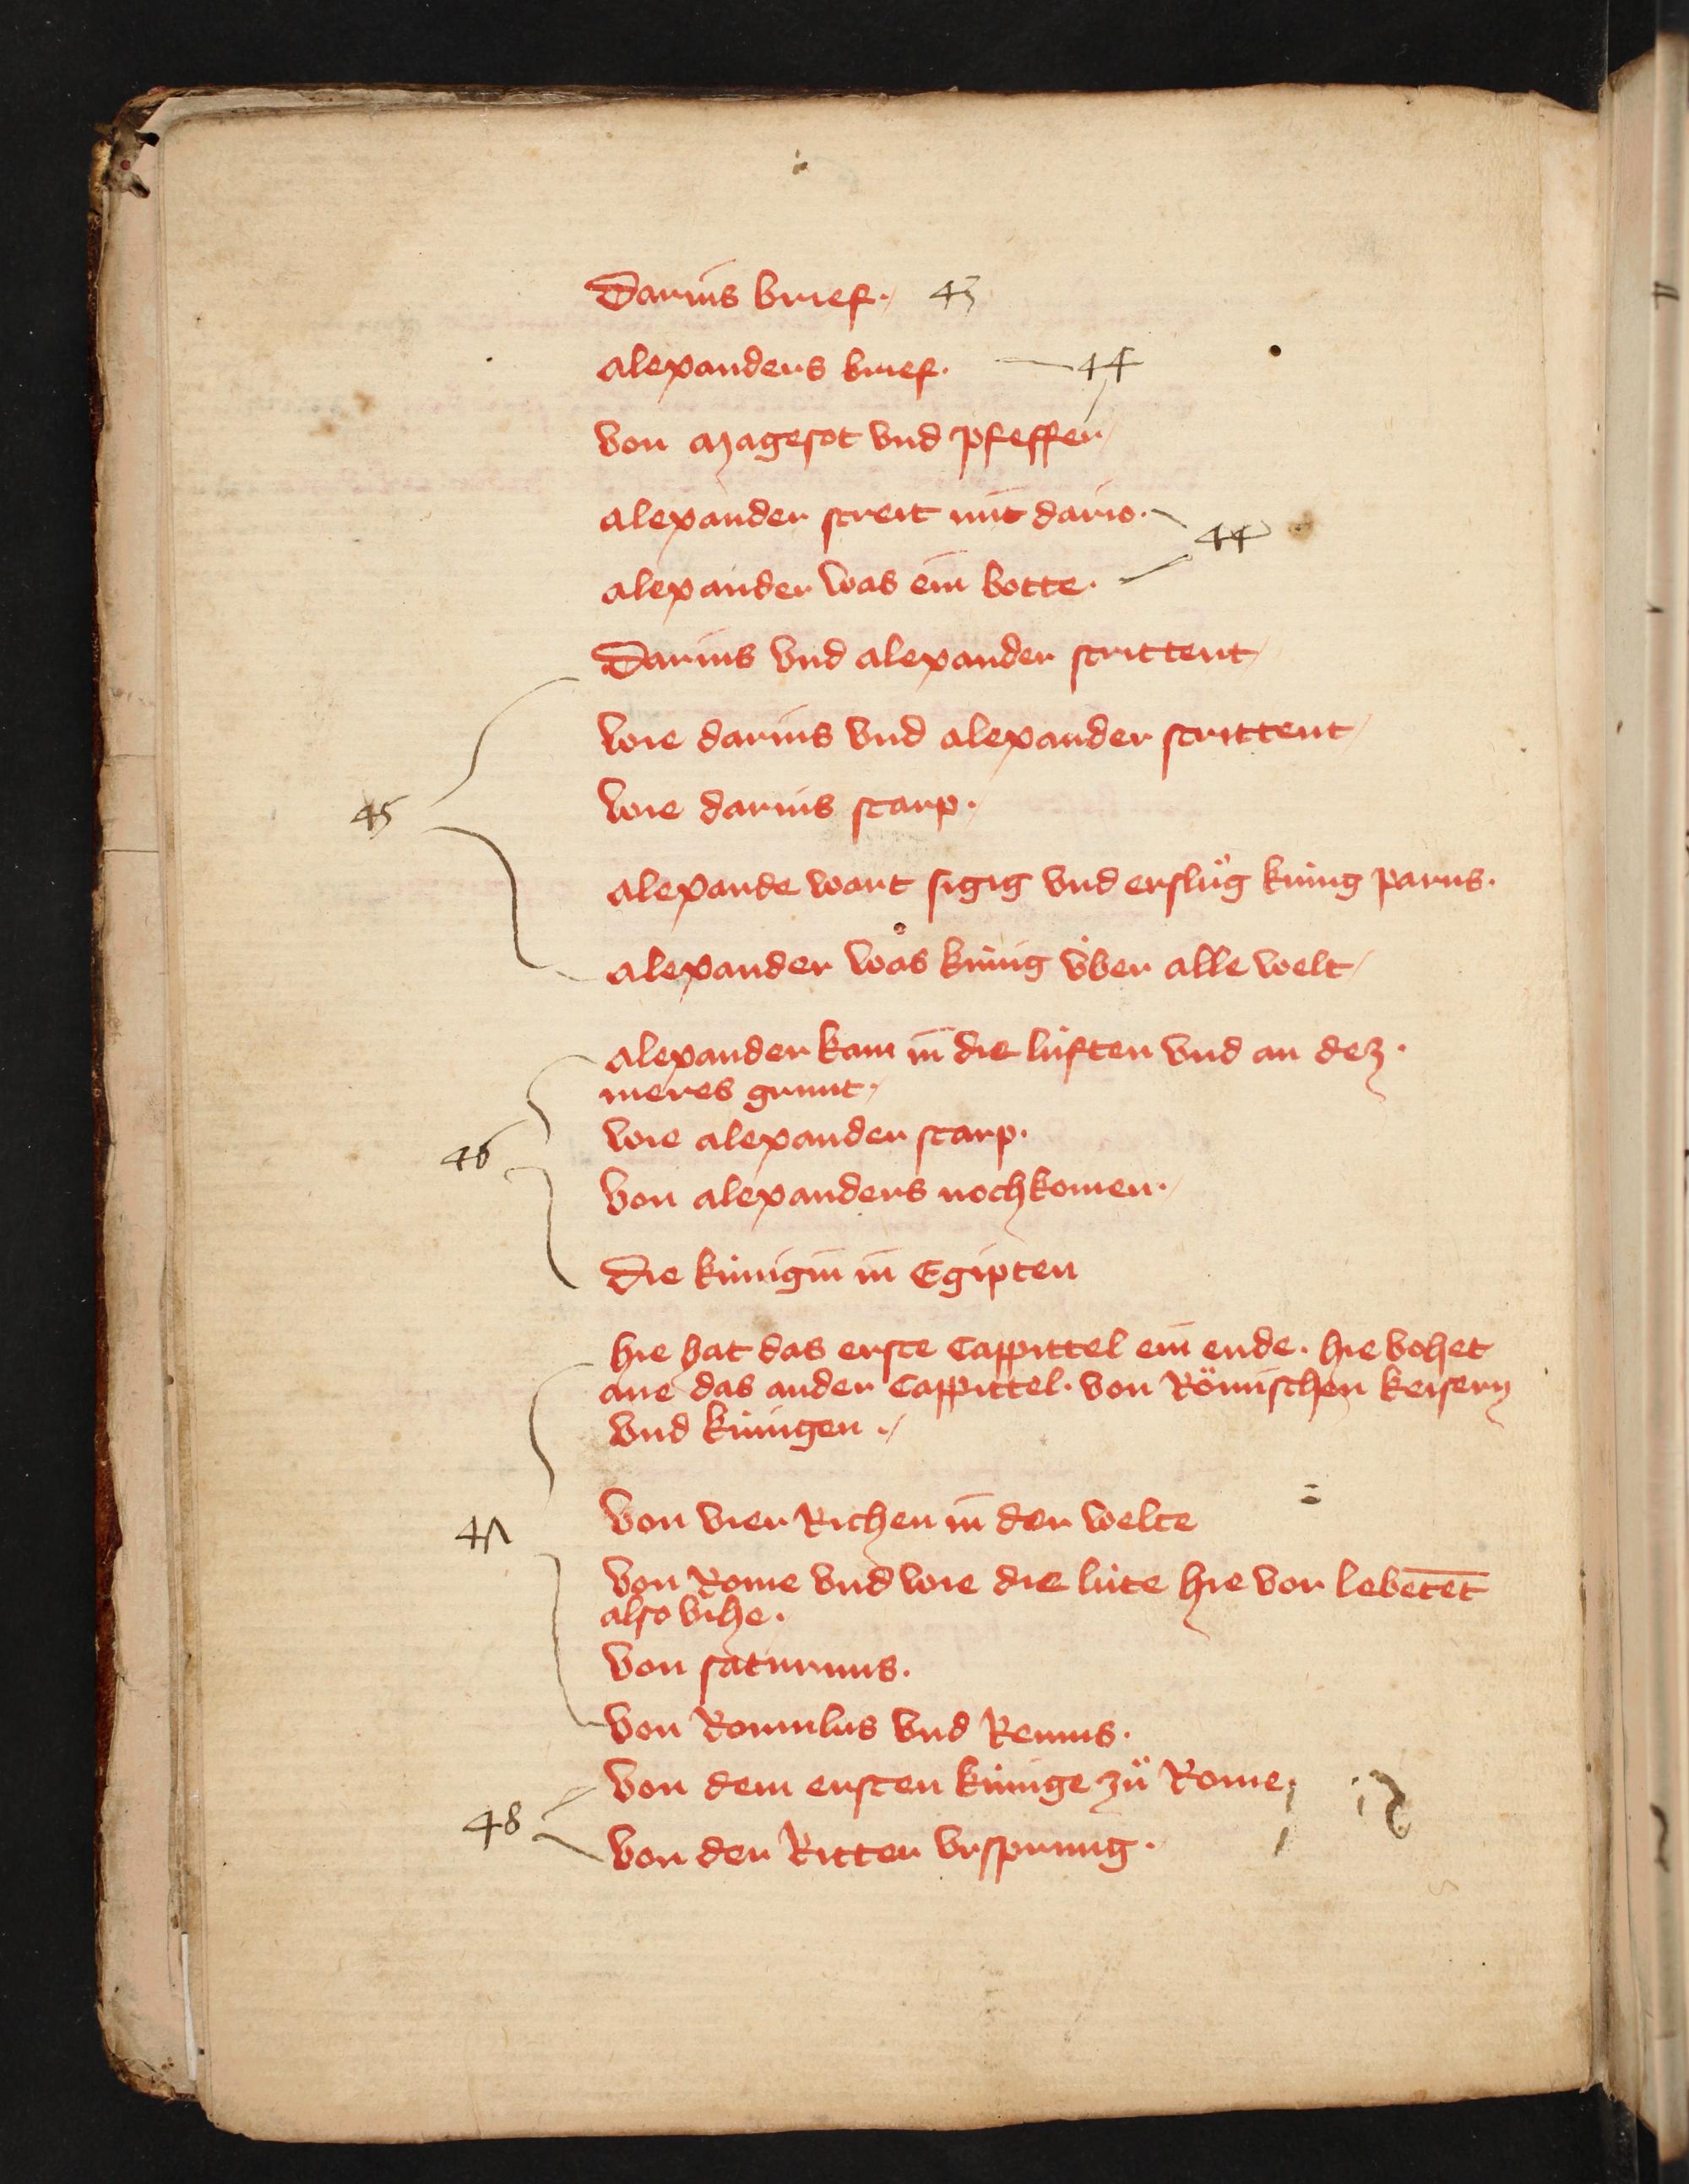 Darius brief. 43
alexanders brief. 44
von magesot vnd pfeffer
alexander streit mit dario.
44
alexander was ein botte.
Darius vnd alexander strittent
wie darius vnd alexander strittent
45 wie darius starp.
alexande wart sigig vnd erslůg kúnig parus.
alexander was kúnig v́ber alle welt
alexander kam in die lúften vnd an dez.
meres grunt.
46 wie alexander starp.
von alexanders nochkomen.
die kúnigin in Egipten
hie hat das erste Cappittel ein ende. hie vohet
ane das ander Cappittel. von Römischen keisern
vnd kúnigen.
47 von vier Richen in der welte
von Rome vnd wie die lúte hie vor lebetēt
also vihe.
von saturnus.
von Romulus vnd Remus.
von dem ersten kúnige zů Rome
48
von der Ritter vrsprung.